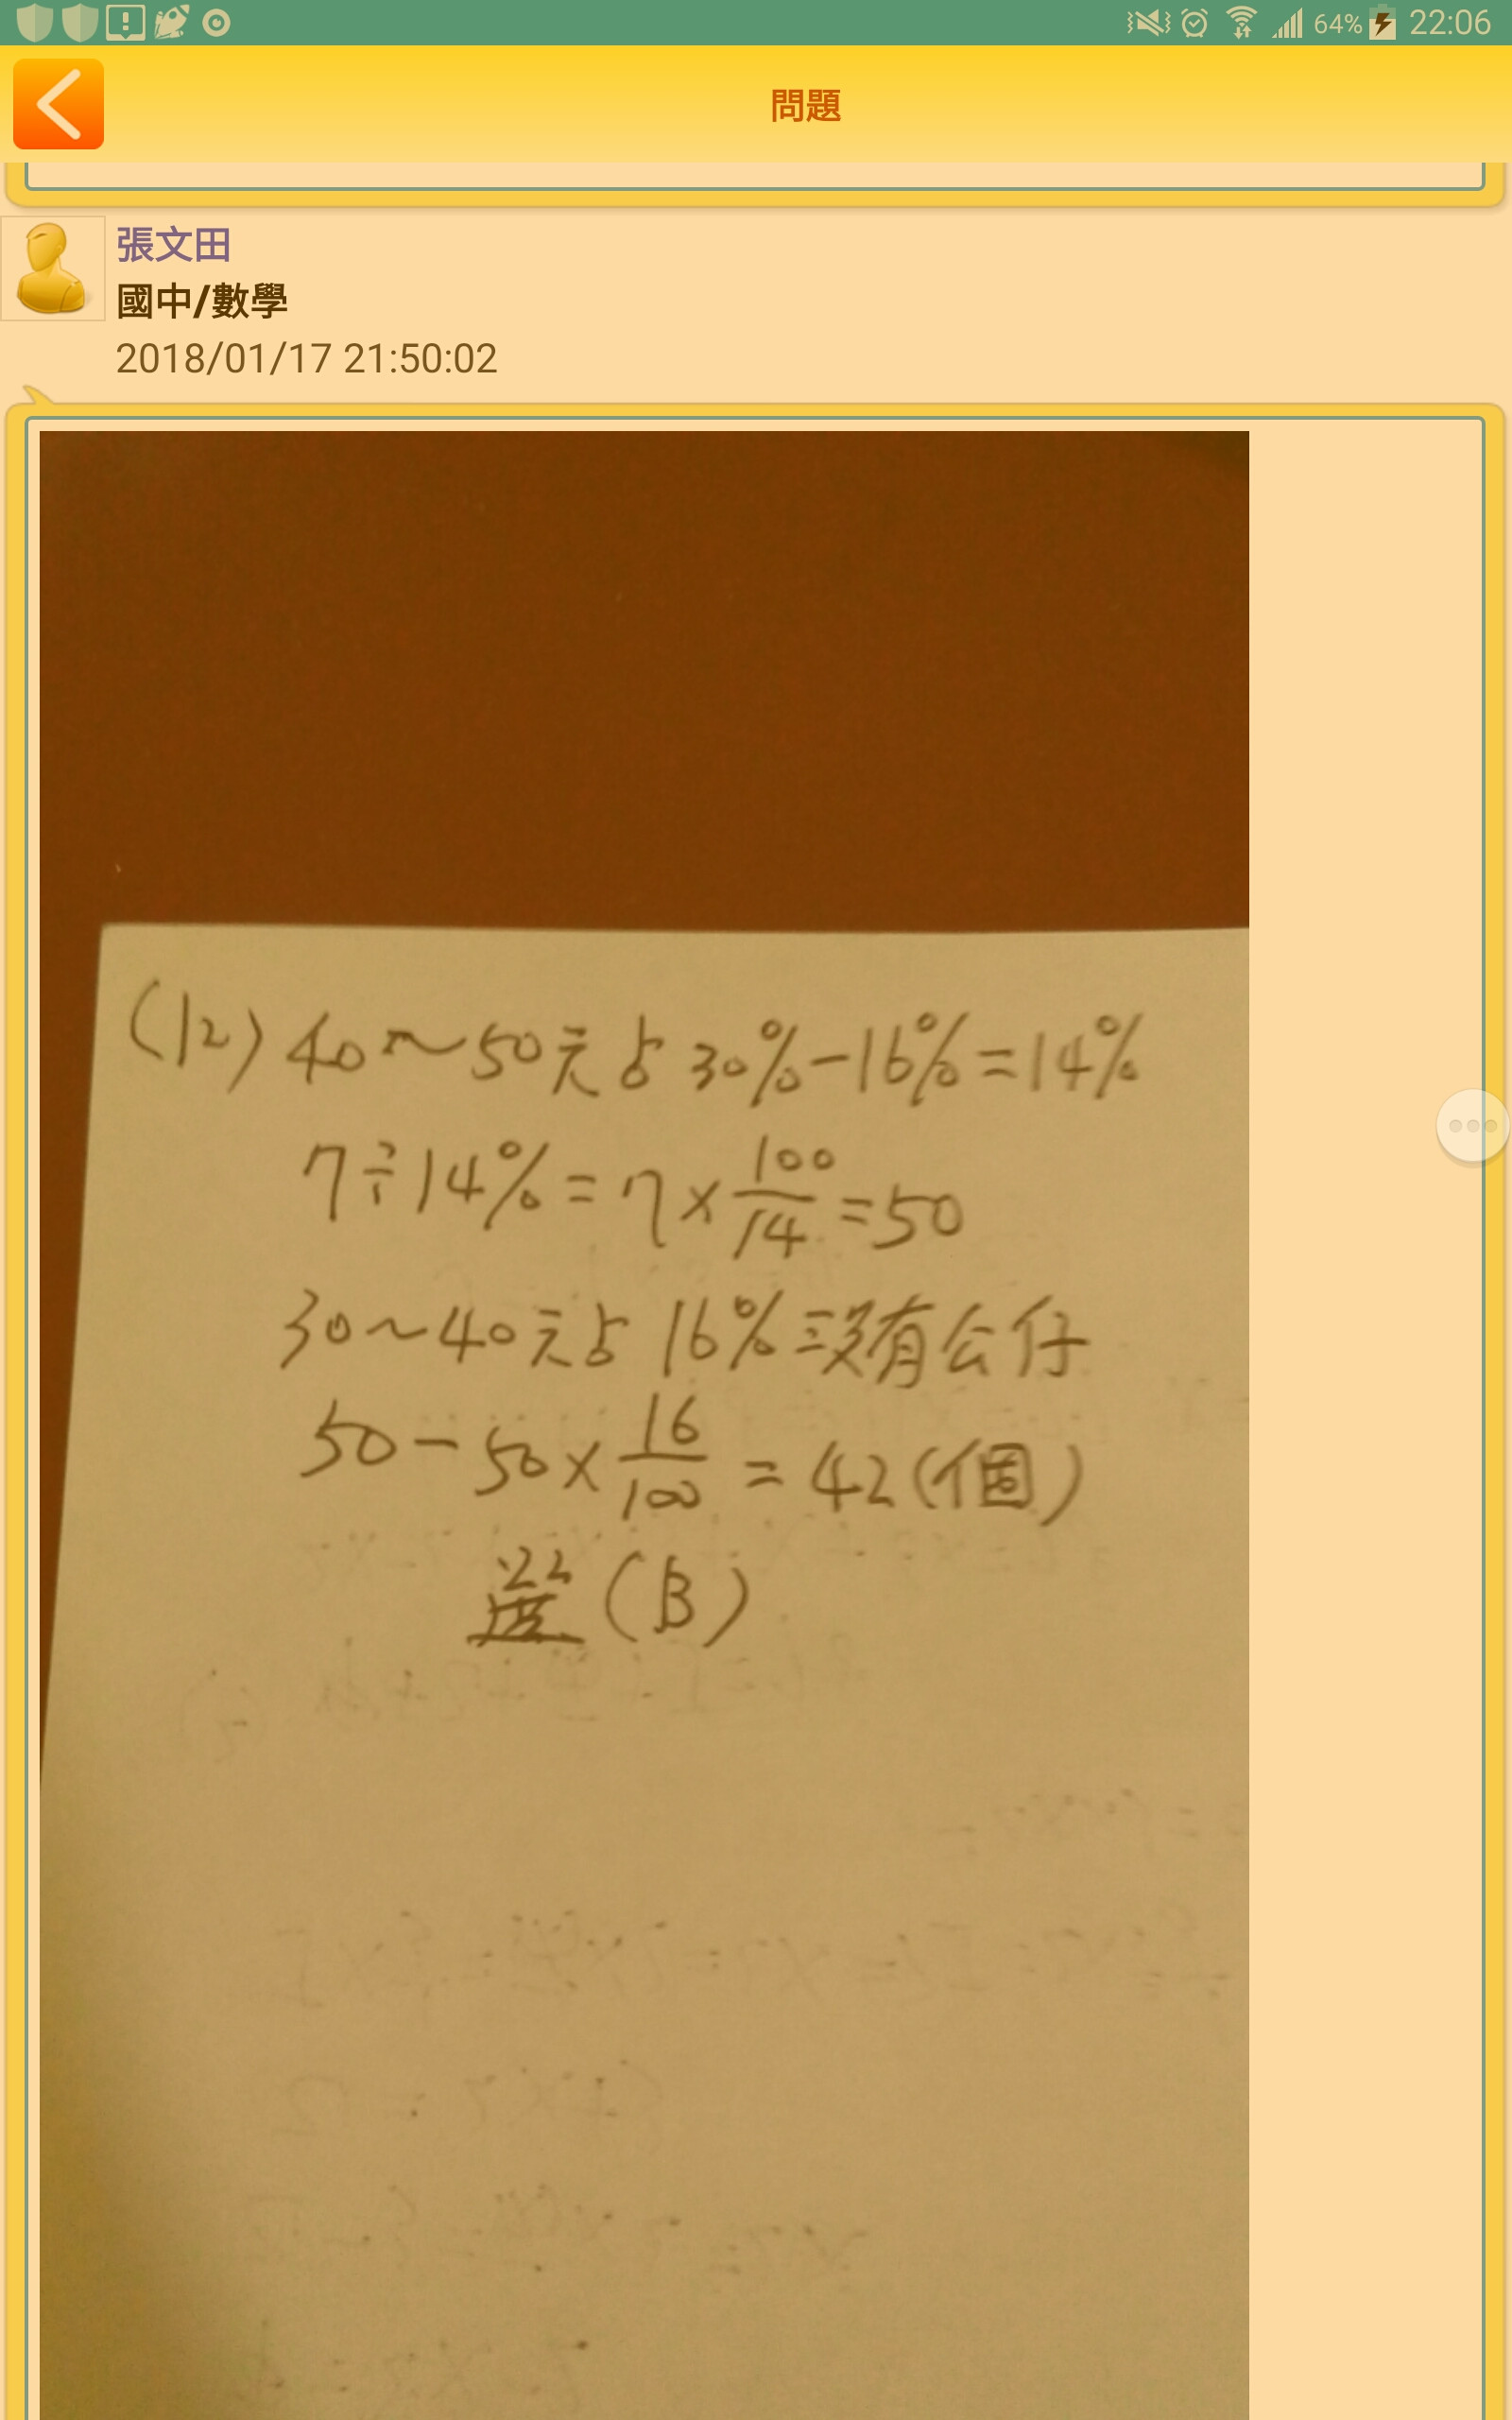 64% 22:06
問題
張文田
國中/數學
2018/01/17 21:50:02
(12) 40~50元占30%-16%=14%
7÷14%=7×100/14=50
30~40元占16%沒有公仔
50-50×16/100=42(個)
選(B)